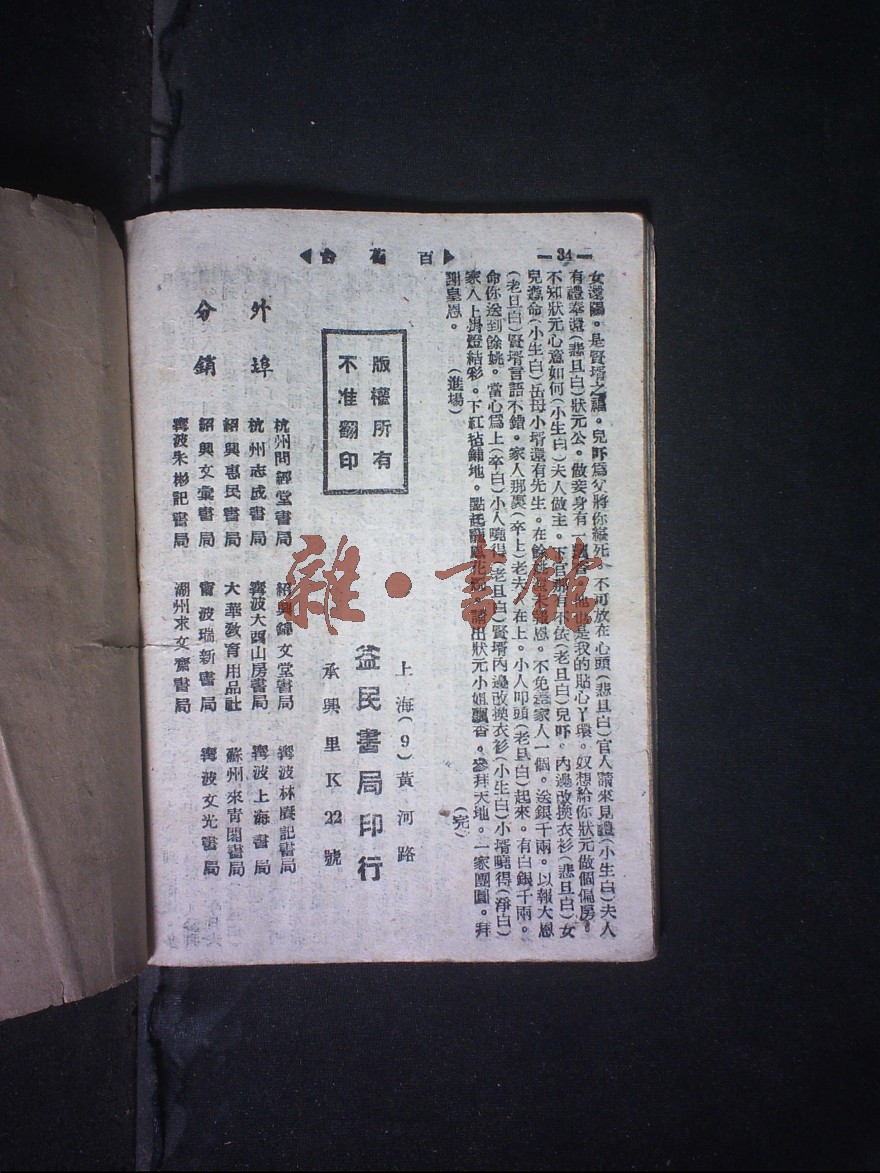 —34—
▶百花台◀
女還陽。是賢壻之福。兒吓爲父將你縊死。不可放在心頭(悲旦白)官人前來見禮(小生白)夫人
有禮奉還(悲旦白)狀元公。做妾身有一飄香。他也是我的貼心丫環。奴想給你狀元做個偏房。
不知狀元心意如何(小生白)夫人做主。下官那有不依(老旦白)兒吓。內邊改換衣衫(悲旦白)女
兒遵命(小生白)岳母小壻還有先生。在餘姚並未報恩。不免差家人一個。送銀千兩。以報大恩
(老旦白)賢壻言語不錯。家人那裏(卒上)老夫人在上。小人叩頭(老旦白)起來。有白銀千兩。
命你送到餘姚。當心爲上(卒白)小人曉得(老旦白)賢壻內邊改換衣衫(小生白)小壻曉得(淨白)
家人上掛燈結彩。下紅毡鋪地。點起龍鳳花燭。請出狀元小姐飄香。參拜天地。一家團圓。拜
謝皇恩。 (進場) (完)
版權所有
不准翻印
上海(9)黃河路
益民書局印行
承興里K22號
外埠
分銷
杭州問經堂書局
紹興錦文堂書局
寗波林賡記書局
杭州志成書局
寗波大酉山房書局
寗波上海書局
紹興惠民書局
大華敎育用品社
蘇州來靑閣書局
紹興文彙書局
寗波瑞新書局
寗波文光書局
寗波朱彬記書局
湖州求文齋書局
雜·書館